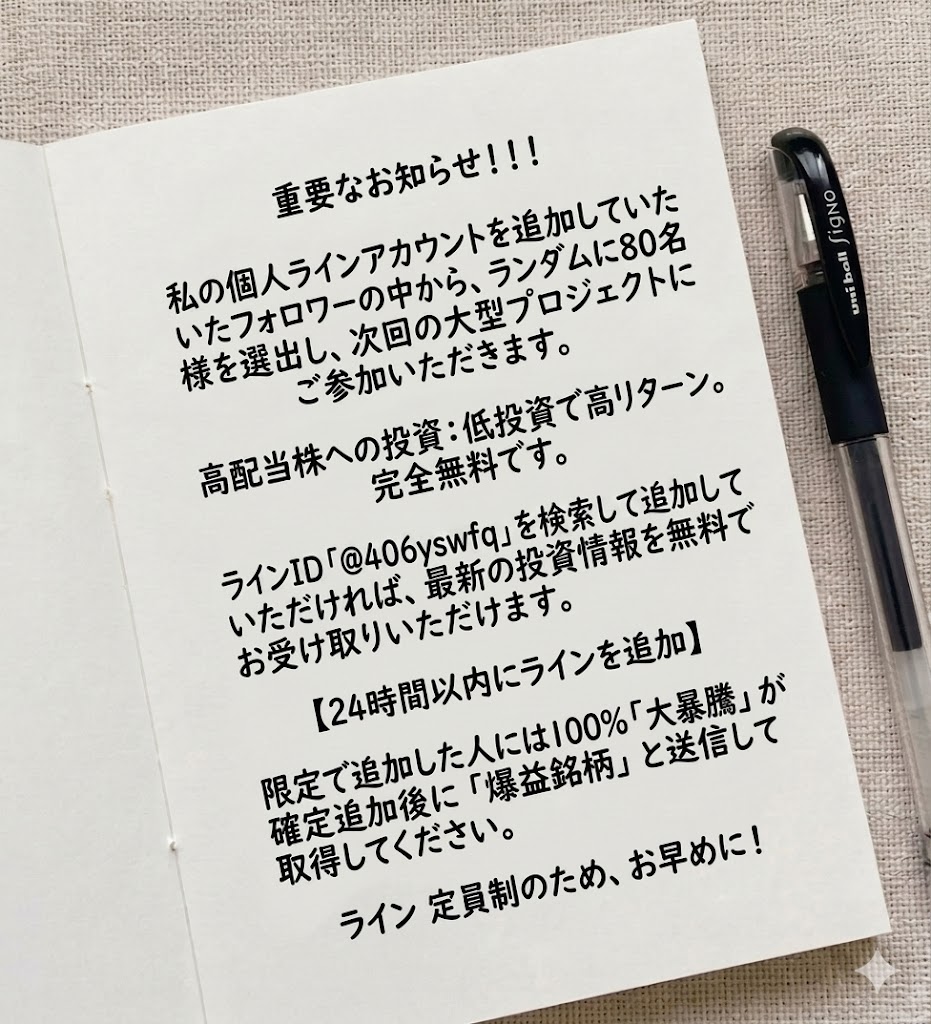 重要なお知らせ！！！
私の個人ラインアカウントを追加していた
いたフォロワーの中から、ランダムに80名
様を選出し、次回の大型プロジェクトに
ご参加いただきます。
高配当株への投資：低投資で高リターン。
完全無料です。
ラインID「@406yswfq」を検索して追加して
いただければ、最新の投資情報を無料で
お受け取りいただけます。
【24時間以内にラインを追加】
限定で追加した人には100%「大暴騰」が
確定追加後に「爆益銘柄」と送信して
取得してください。
ライン 定員制のため、お早めに！
uni-ball Signo